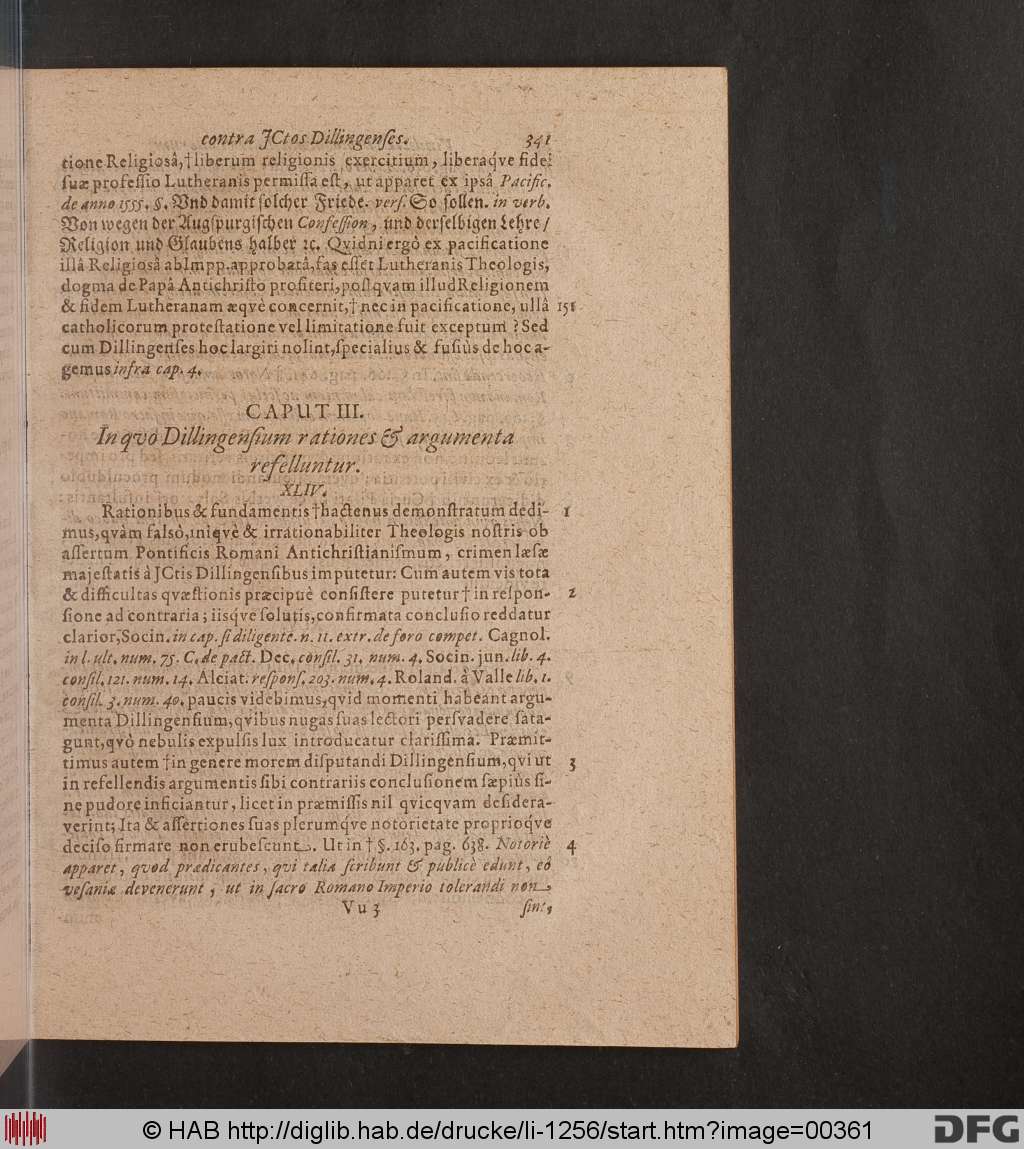 contra JCtos Dillingenses. 341
tione Religiosâ,† liberum religionis exercitium, liberaq́ve fidei
suæ professio Lutheranis permissa est, ut apparet ex ipsâ Pacific.
de anno 1555. §. Vnd damit solcher Friede. vers. So sollen. in verb.
Von wegen der Augspurgischen Confession, und derselbigen Lehre /
Religion und Glaubens halber ꝛc. Qvidni ergò ex pacificatione
illâ Religiosâ ab Impp. approbatâ, fas esset Lutheranis Theologis,
dogma de Papâ Antichristo profiteri, postqvam illud Religionem
& fidem Lutheranam æqvè concernit,† nec in pacificatione, ullâ 151
catholicorum protestatione vel limitatione fuit exceptum ? Sed
cum Dillingenses hoc largiri nolint, specialius & fusiùs de hoc a-
gemus infra cap. 4.
CAPUT III.
In qvo Dillingensium rationes & argumenta
refelluntur.
XLIV.
Rationibus & fundamentis † hactenus demonstratum dedi- 1
mus, qvàm falsò, iniqvè & irrationabiliter Theologis nostris ob
assertum Pontificis Romani Antichristianismum, crimen læsæ
majestatis à JCtis Dillingensibus imputetur: Cum autem vis tota
& difficultas qvæstionis præcipuè consistere putetur † in respon- 2
sione ad contraria; iisq́ve solutis, confirmata conclusio reddatur
clarior, Socin. in cap. si diligente. n. 11. extr. de foro compet. Cagnol.
in l. ult. num. 75. C. de pact. Dec. consil. 31. num. 4. Socin. jun. lib. 4.
consil. 121. num. 14. Alciat. respons. 203. num. 4. Roland. à Valle lib. 1.
consil. 3. num. 40. paucis videbimus, qvid momenti habeant argu-
menta Dillingensium, qvibus nugas suas lectori persvadere sata-
gunt, qvò nebulis expulsis lux introducatur clarissima. Præmit-
timus autem † in genere morem disputandi Dillingensium, qvi ut 3
in refellendis argumentis sibi contrariis conclusionem sæpiùs si-
ne pudore inficiantur, licet in præmissis nil qvicqvam desidera-
verint; Ita & assertiones suas plerumq́ve notorietate proprioq́ve
deciso firmare non erubescunt. Ut in † §. 163. pag. 638. Notoriè 4
apparet, quod prædicantes, qvi talia scribunt & publicè edunt, eò
vesaniæ devenerunt, ut in sacro Romano Imperio tolerandi non
Vu 3 sint,
© HAB http://diglib.hab.de/drucke/li-1256/start.htm?image=00361
DFG